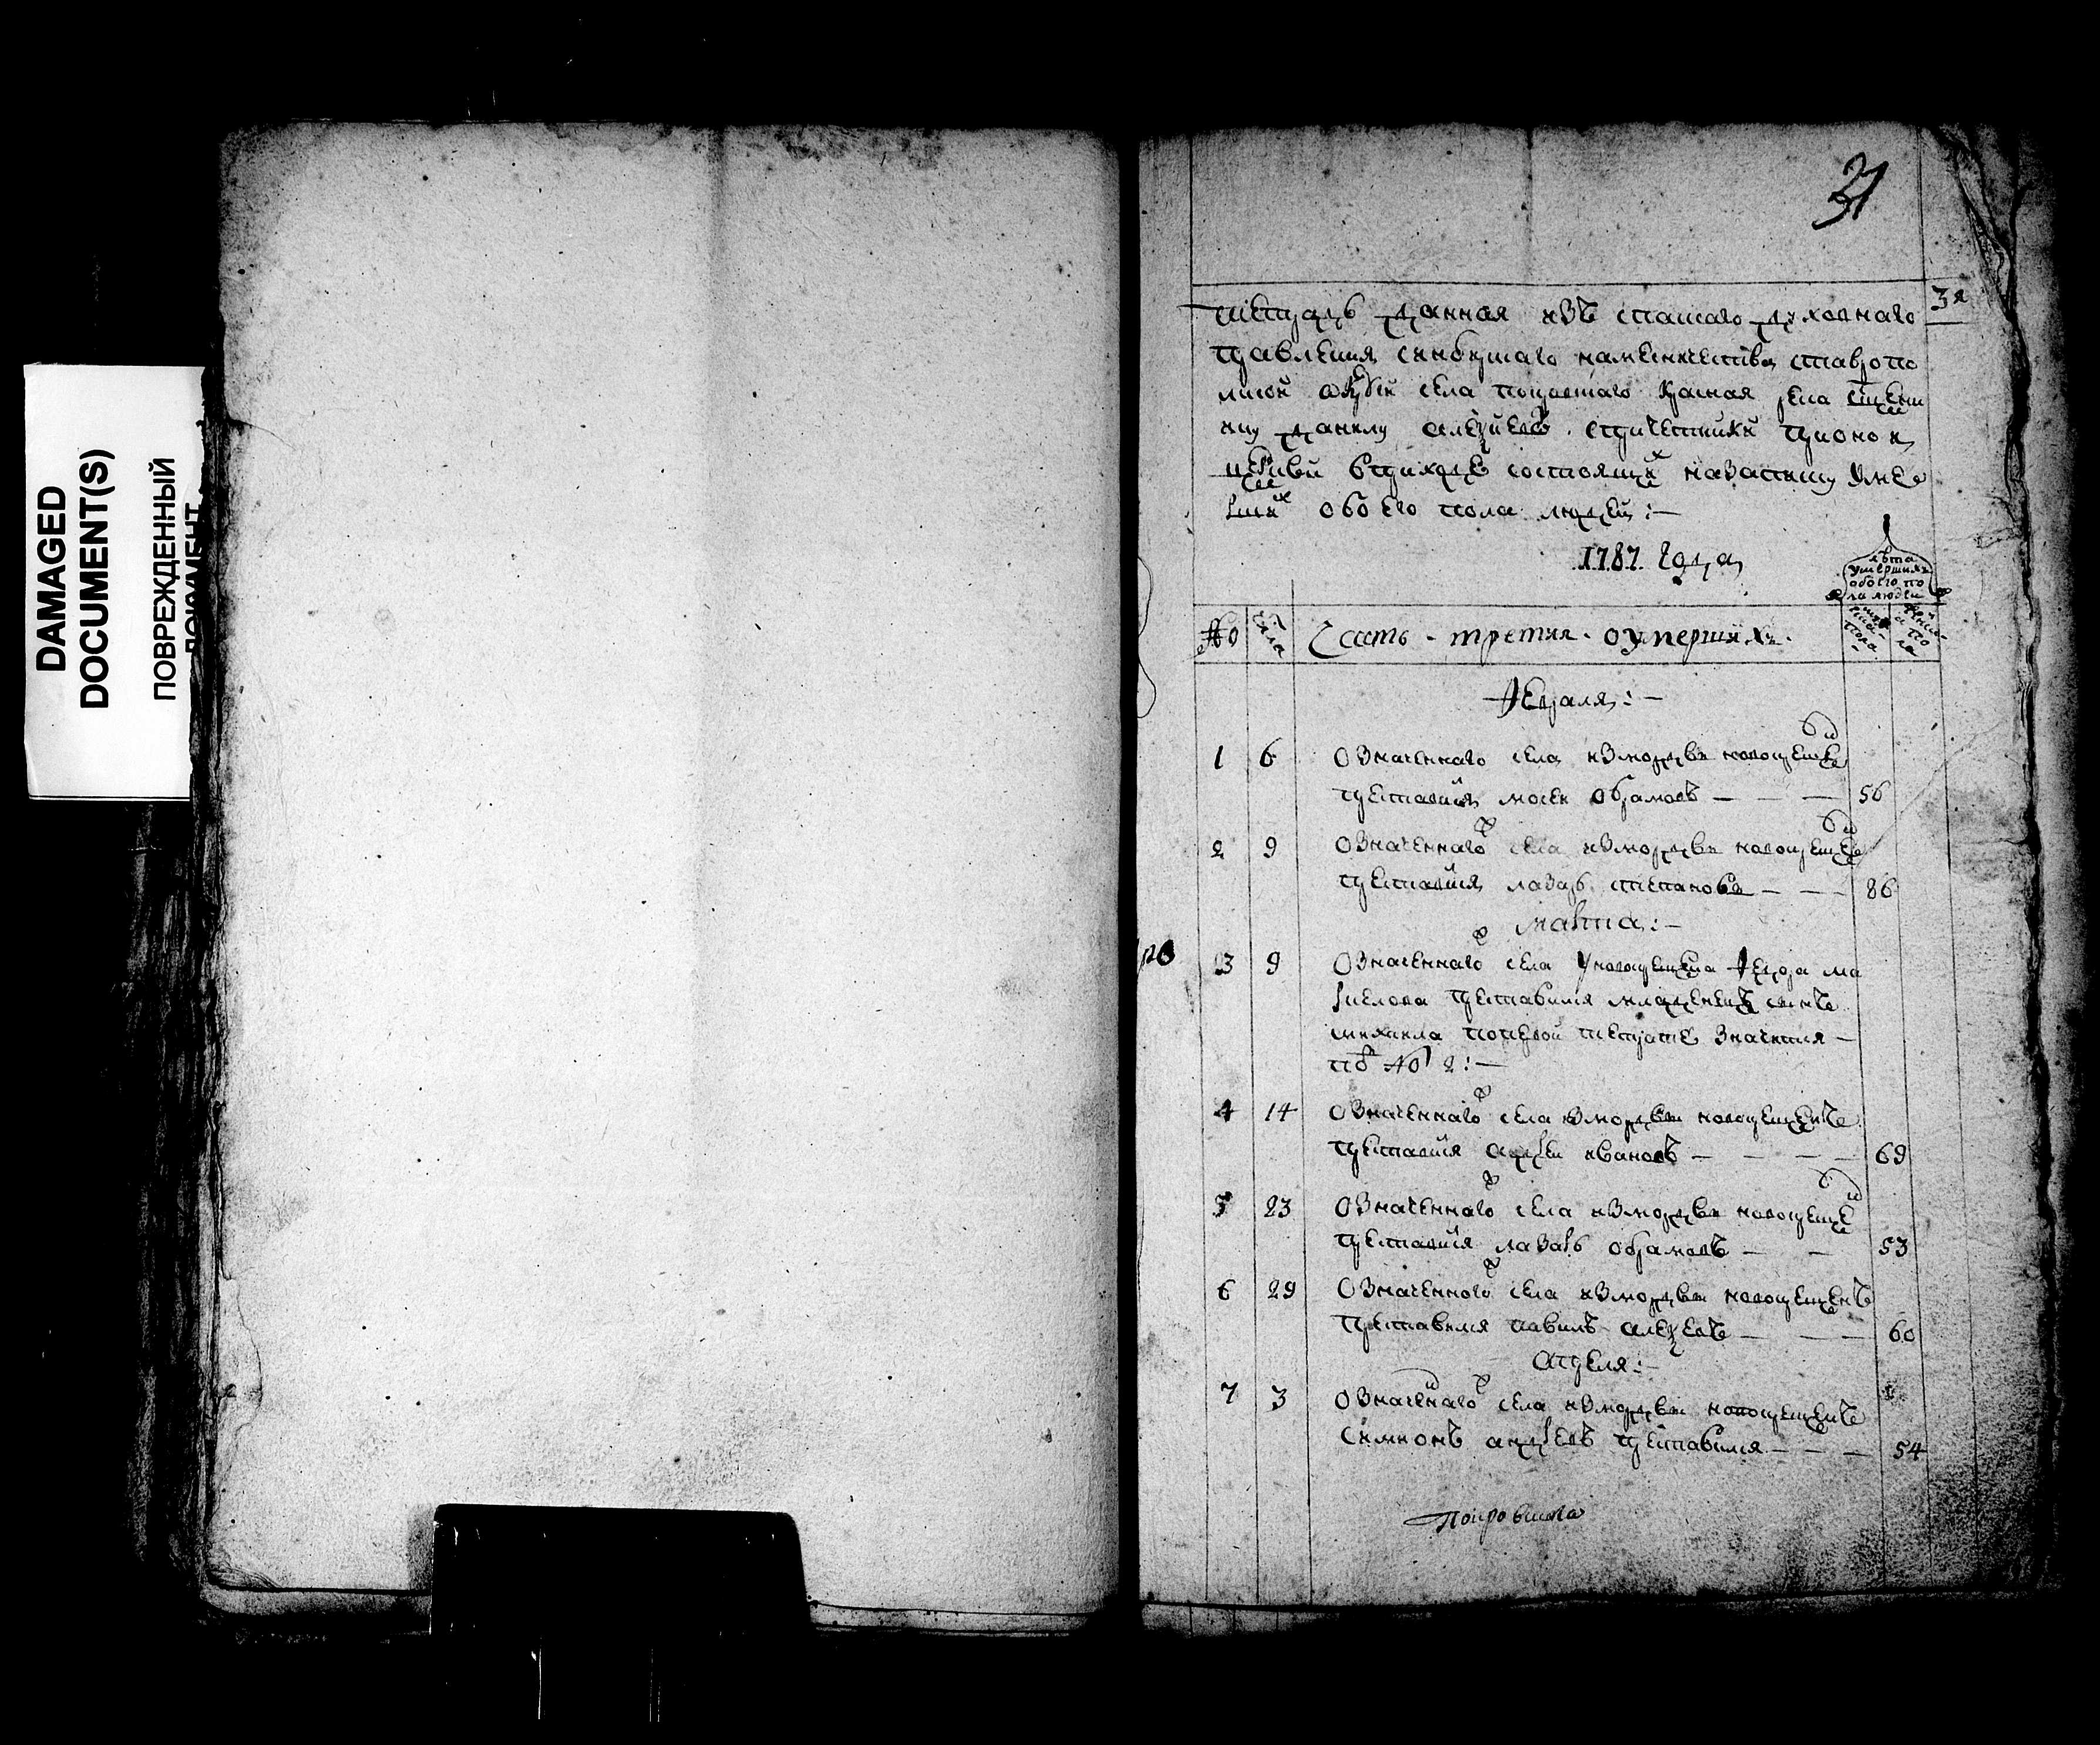 DAMAGED
DOCUMENT(S)
ПОВРЕЖДЕННЫЙ
ДОКУМЕНТ
31
3я
тетрадь данная изъ спасшаго духовнаго
правления синбиршаго наместничества ставропо
округи села покровшаго красная река священ
ику данилу алеѯѣевѣ спричетники
церкви вприходе состоящих наᲂумер
ших обоего пола людей :—
1787. года
лѣта
умершихъ
обоего по
ла людеи
№
числа
Часть - третия - оумершихъ.
мужеска
пола
женска
пола
Февраля :—
1 6 означеннаго села измордвы новокрещен
преставися моисеи обрамовъ — — — 56
2 9 означеннаго села измордвы новокрещен
преставися лазарь степановъ — — — 86
марта :—
3 9 означеннаго села у новокрещена Федора ма
преставился младенецъ сынъ
михаила попервой тетрате значится —
под № 2 :—
4 14 означеннаго села измордвы новокрещенъ
преставися андреи ивановъ — — — — 69
5 23 означеннаго села измордвы новокрещен
преставися лазарь обрамовъ — — 53
6 29 означенного села измордвы новокрещенъ
преставился павилъ алеѯеевъ — — — 60
Апреля :—
7 3 означенаго села измордвы новокрещенъ
Симионъ андреевъ преставился — — — 54
покровшаго